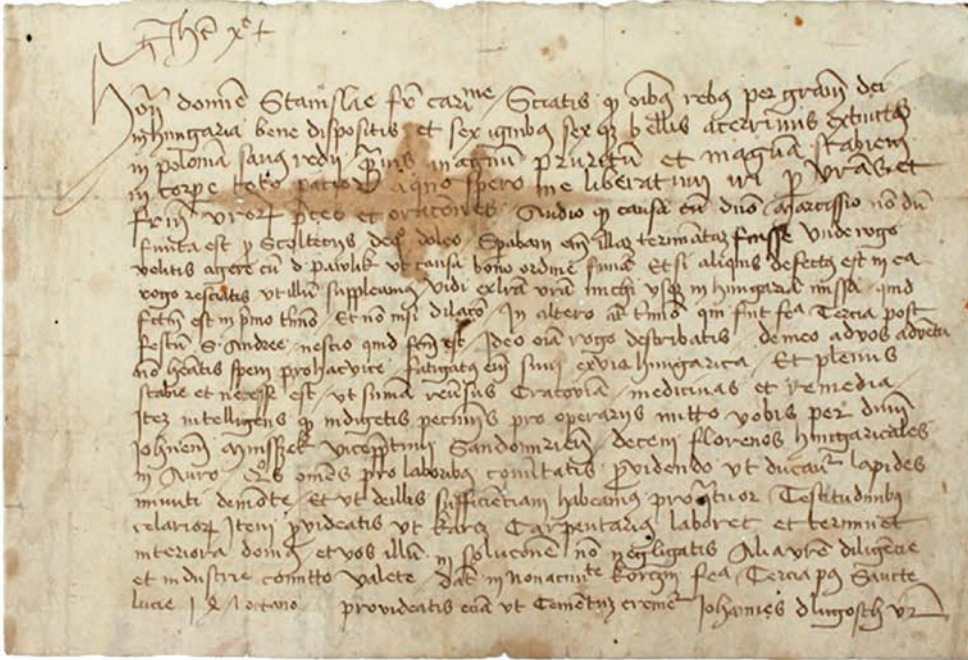 Jhe xc +
Hon domine Stanislae fr carime / Sciatis qp oibq rebq per gram dei
in hungaria bene dispositis et sex ignibq sex qz bellis acerrimis extinctis
in poloniam sanq redij qmuis magnum pruritum et magnam scabiem
in corpe toto patior a quo spero me liberatum iri p vras et
frm vror pces et oraones Audio qp causa cu dno Narcissio no du
finita est p Scoltecijs deqo doleo Spabam em illaz terminataz fuisse Unde rogo
velitis agere cu d pawlik ut causa bono ordine finiat Et si aliquis defectq est in ea
rogo resciatis ut illu suppleamq Vidi ex lra vra michi usqz in hungaria missa quid
fctm est in pmo tmno / Et no nisi dilaco / In altero at tmno qui fuit fea Tercia post
festu S Andree nescio quid fcm est Ideo oia rogo describatis / de me ad vos adventu
no heatis spem pro hac vice fatigatq em sum ex via hungarica / Et plenus
scabie et necesse est ut sumam reusus Cracoviam medicinas et remedia
Itez intelligens qp indigetis pecunijs pro operarijs mitto vobis per dnm
Iohnem Mnisszek viceptmu Sandomirien / decem florenos hungaricales
in Auro / qos omes pro laboribq comitatis pvidendo ut ducant lapides
inuunti de monte / Et ut de illis sufficienciam habeamq pro qtuor Testitudinibq
celarior Item pvideatis ut karcz Carpentariq laboret et terminet
interiora domq et vos illu in soluconem no negligatis Alia vre diligecie
et industrie comitto Valete / dat in Nona civite korczin fea Tercia pq Sancte
lucie l x octavo provideatis ecia ut Cementuz cremet Iohannes dlugosch vr